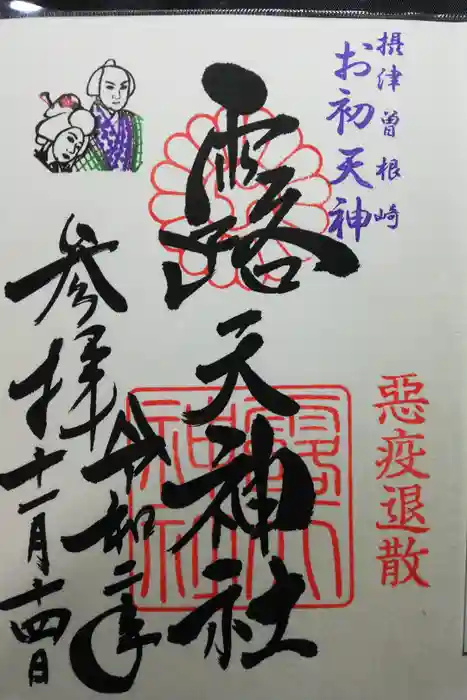 摂津曽根崎
お初天神
惡疫退散
露天神社
露天
神社
令和二年
参拝
十一月十四日